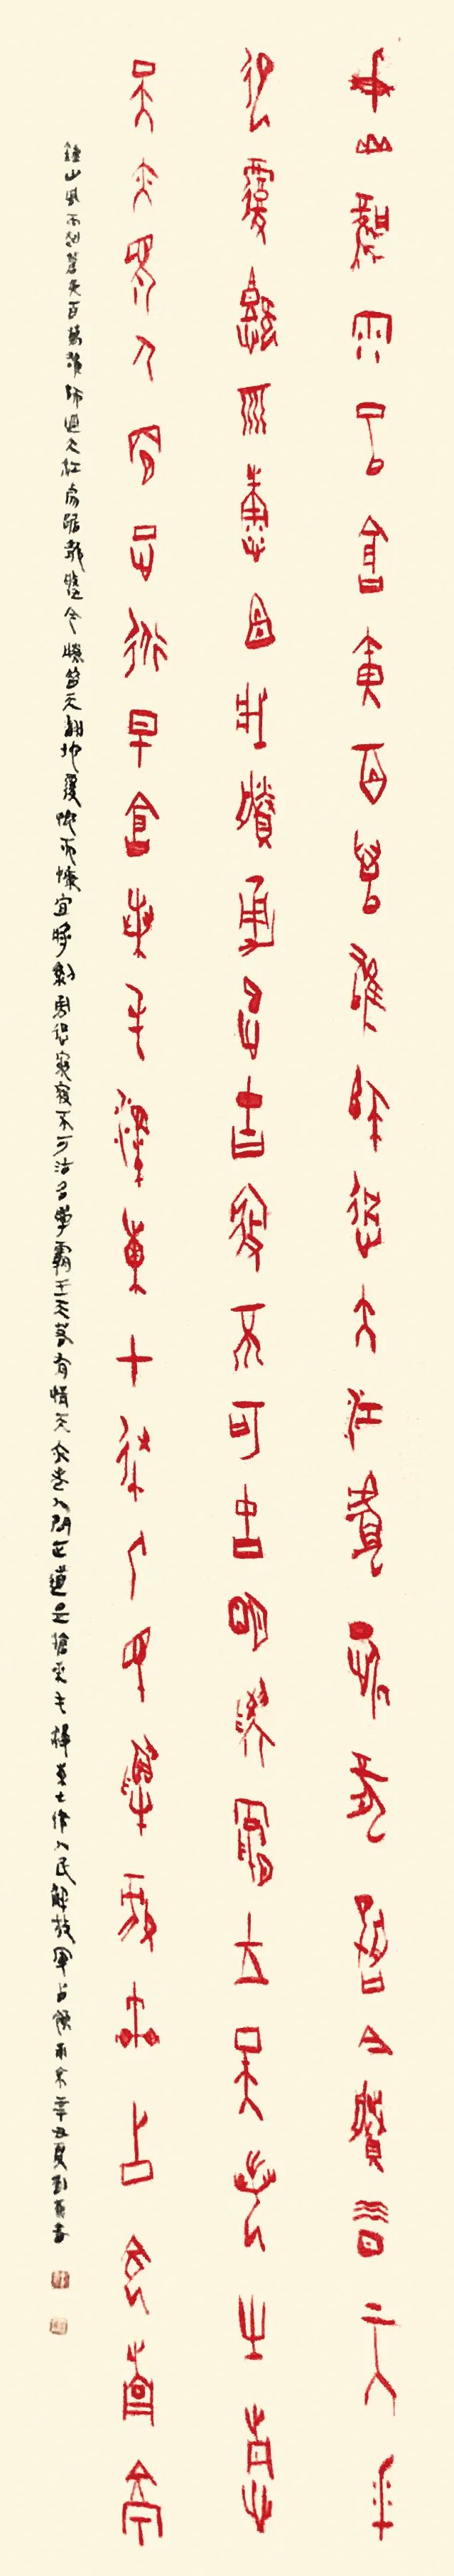 鍾山風雨起蒼黃百萬雄師過大江虎踞龍盤今勝昔天翻
地覆慨而慷宜將剩勇追窮寇不可沽名學霸王天若有情
天亦老人間正道是滄桑毛澤東七律人民解放軍占領南京
鍾山風雨起蒼黃百萬雄師過大江虎踞龍盤今勝昔天翻地覆慨而慷宜將剩勇追窮寇不可沽名學霸王天若有情天亦老人間正道是滄桑毛澤東七律人民解放軍占領南京辛丑夏書